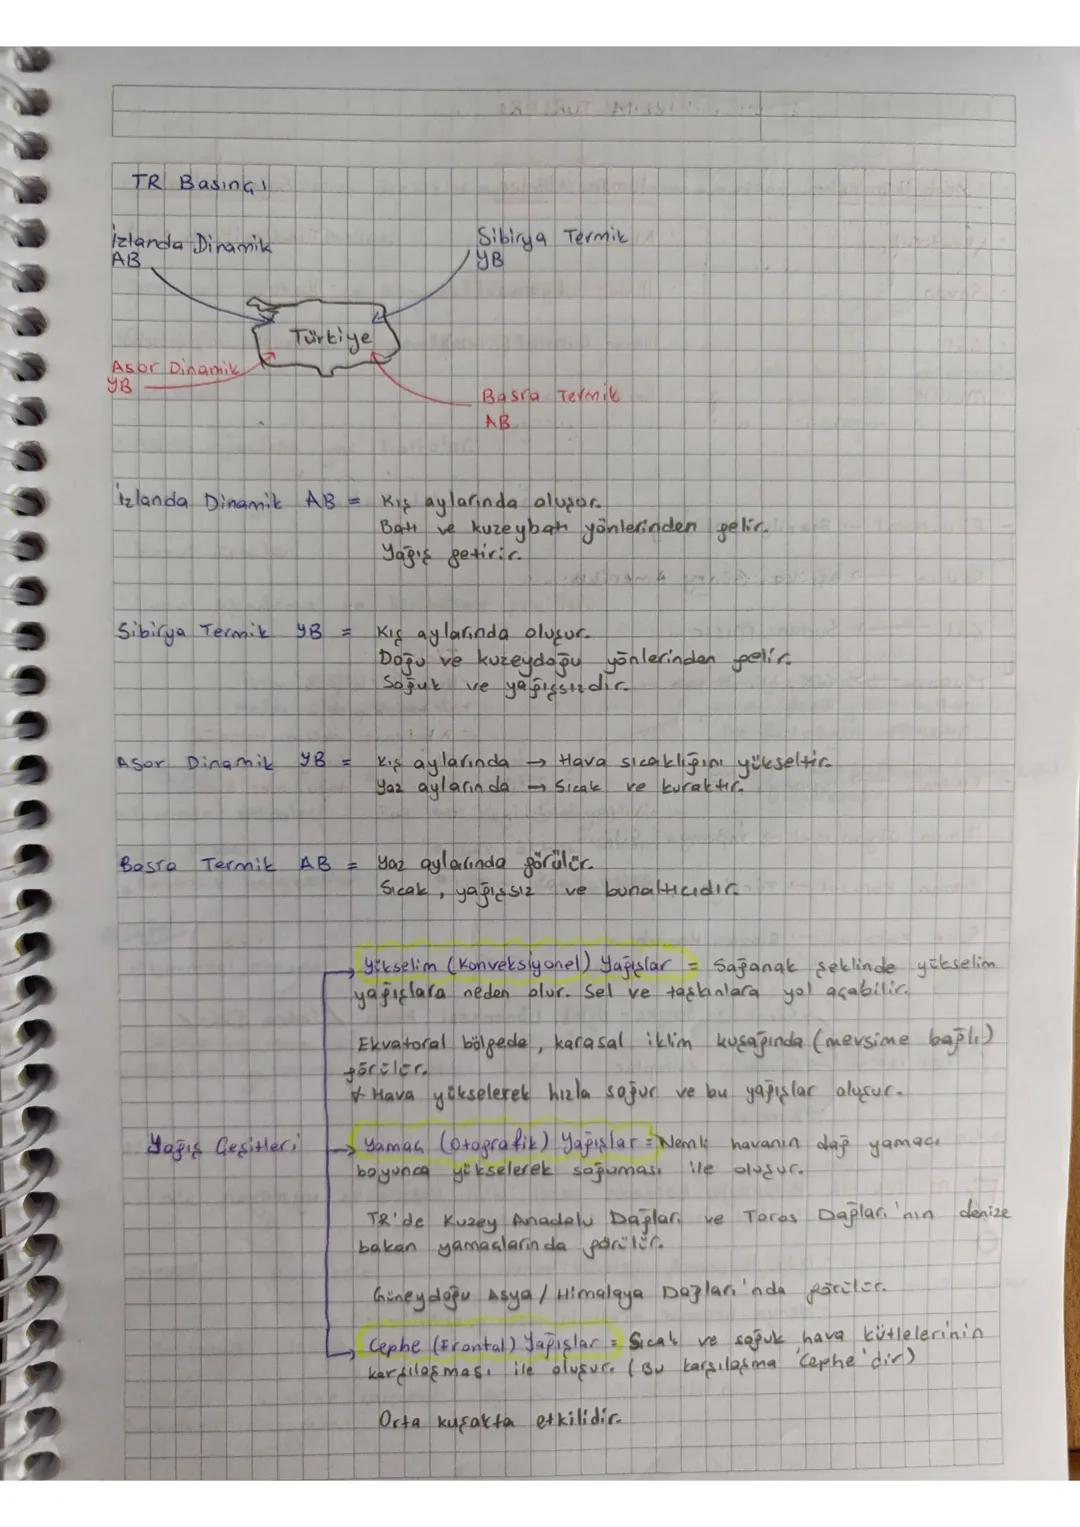 TR Basıncı
İzlanda Dinamik
AB
Sibirya Termik
YB
Türkiye
Asor Dinamik
YB
Basra Termik
AB
İzlanda Dinamik AB = Kış aylarında oluşur.
Batı ve kuzeybatı yönlerinden gelir.
Yağış getirir.
Sibirya Termik YB = Kış aylarında oluşur.
Doğu ve kuzeydoğu yönlerinden gelir.
Soğuk ve yağışsızdır.
Asor Dinamik YB = Kış aylarında → Hava sıcaklığını yükseltir.
Yaz aylarında → Sıcak ve kuraktır.
Basra Termik AB = Yaz aylarında görülür.
Sıcak, yağışsız ve bunaltıcıdır.
Yükselim (Konveksiyonel) Yağışlar = Sağanak şeklinde yükselim
yağışlara neden olur. Sel ve taşkınlara yol açabilir.
Ekvatoral bölgede, karasal iklim kuşağında (mevsime bağlı)
görülür.
* Hava yükselerek hızla soğur ve bu yağışlar oluşur.
Yağış Çeşitleri
Yamaç (Otografik) Yağışlar = Nemli havanın dağ yamacı
boyunca yükselerek soğuması ile oluşur.
TR'de Kuzey Anadolu Dağları ve Toros Dağları'nın denize
bakan yamaçlarında görülür.
Güneydoğu Asya / Himalaya Dağları'nda görülür.
Cephe (Frontal) Yağışlar = Sıcak ve soğuk hava kütlelerinin
karşılaşması ile oluşur. (Bu karşılaşma 'cephe'dir)
Orta kuşakta etkilidir.